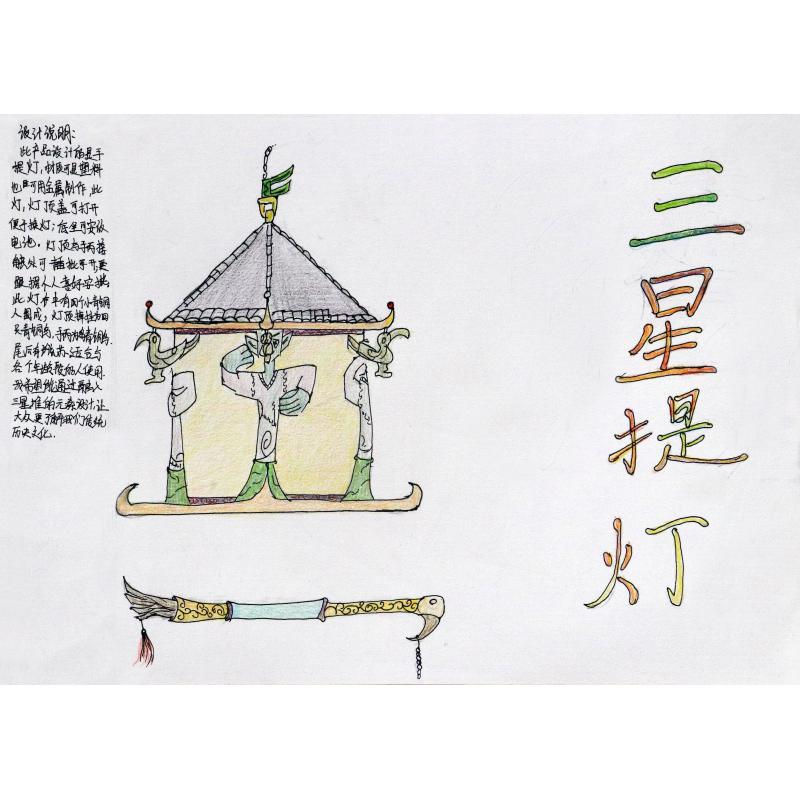 设计说明：
此产品设计的是手
提灯，材质可是塑料
也可用金属制作，此
灯，灯顶盖可打开
便于换灯；底坐可安放
电池，灯顶与手柄接
触处可 开,更
跟据个人喜好安装.
此灯由四个小青铜
人围成，灯顶 四
只青铜鸟，手柄为青铜鸟.
尾后有流苏.适合与
各个年龄段的人使用.
我希望能通过融入
三星堆的元素设计，让
大众更了解我们传统
历史文化.
三星提灯